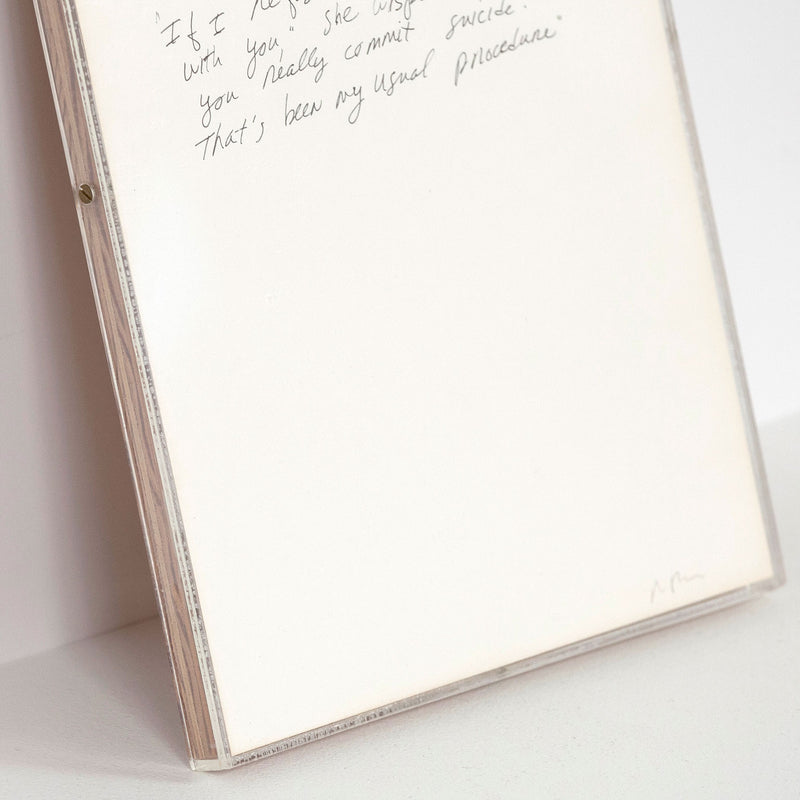 "If I
with you," she
you really commit suicide.
That's been my usual procedure"